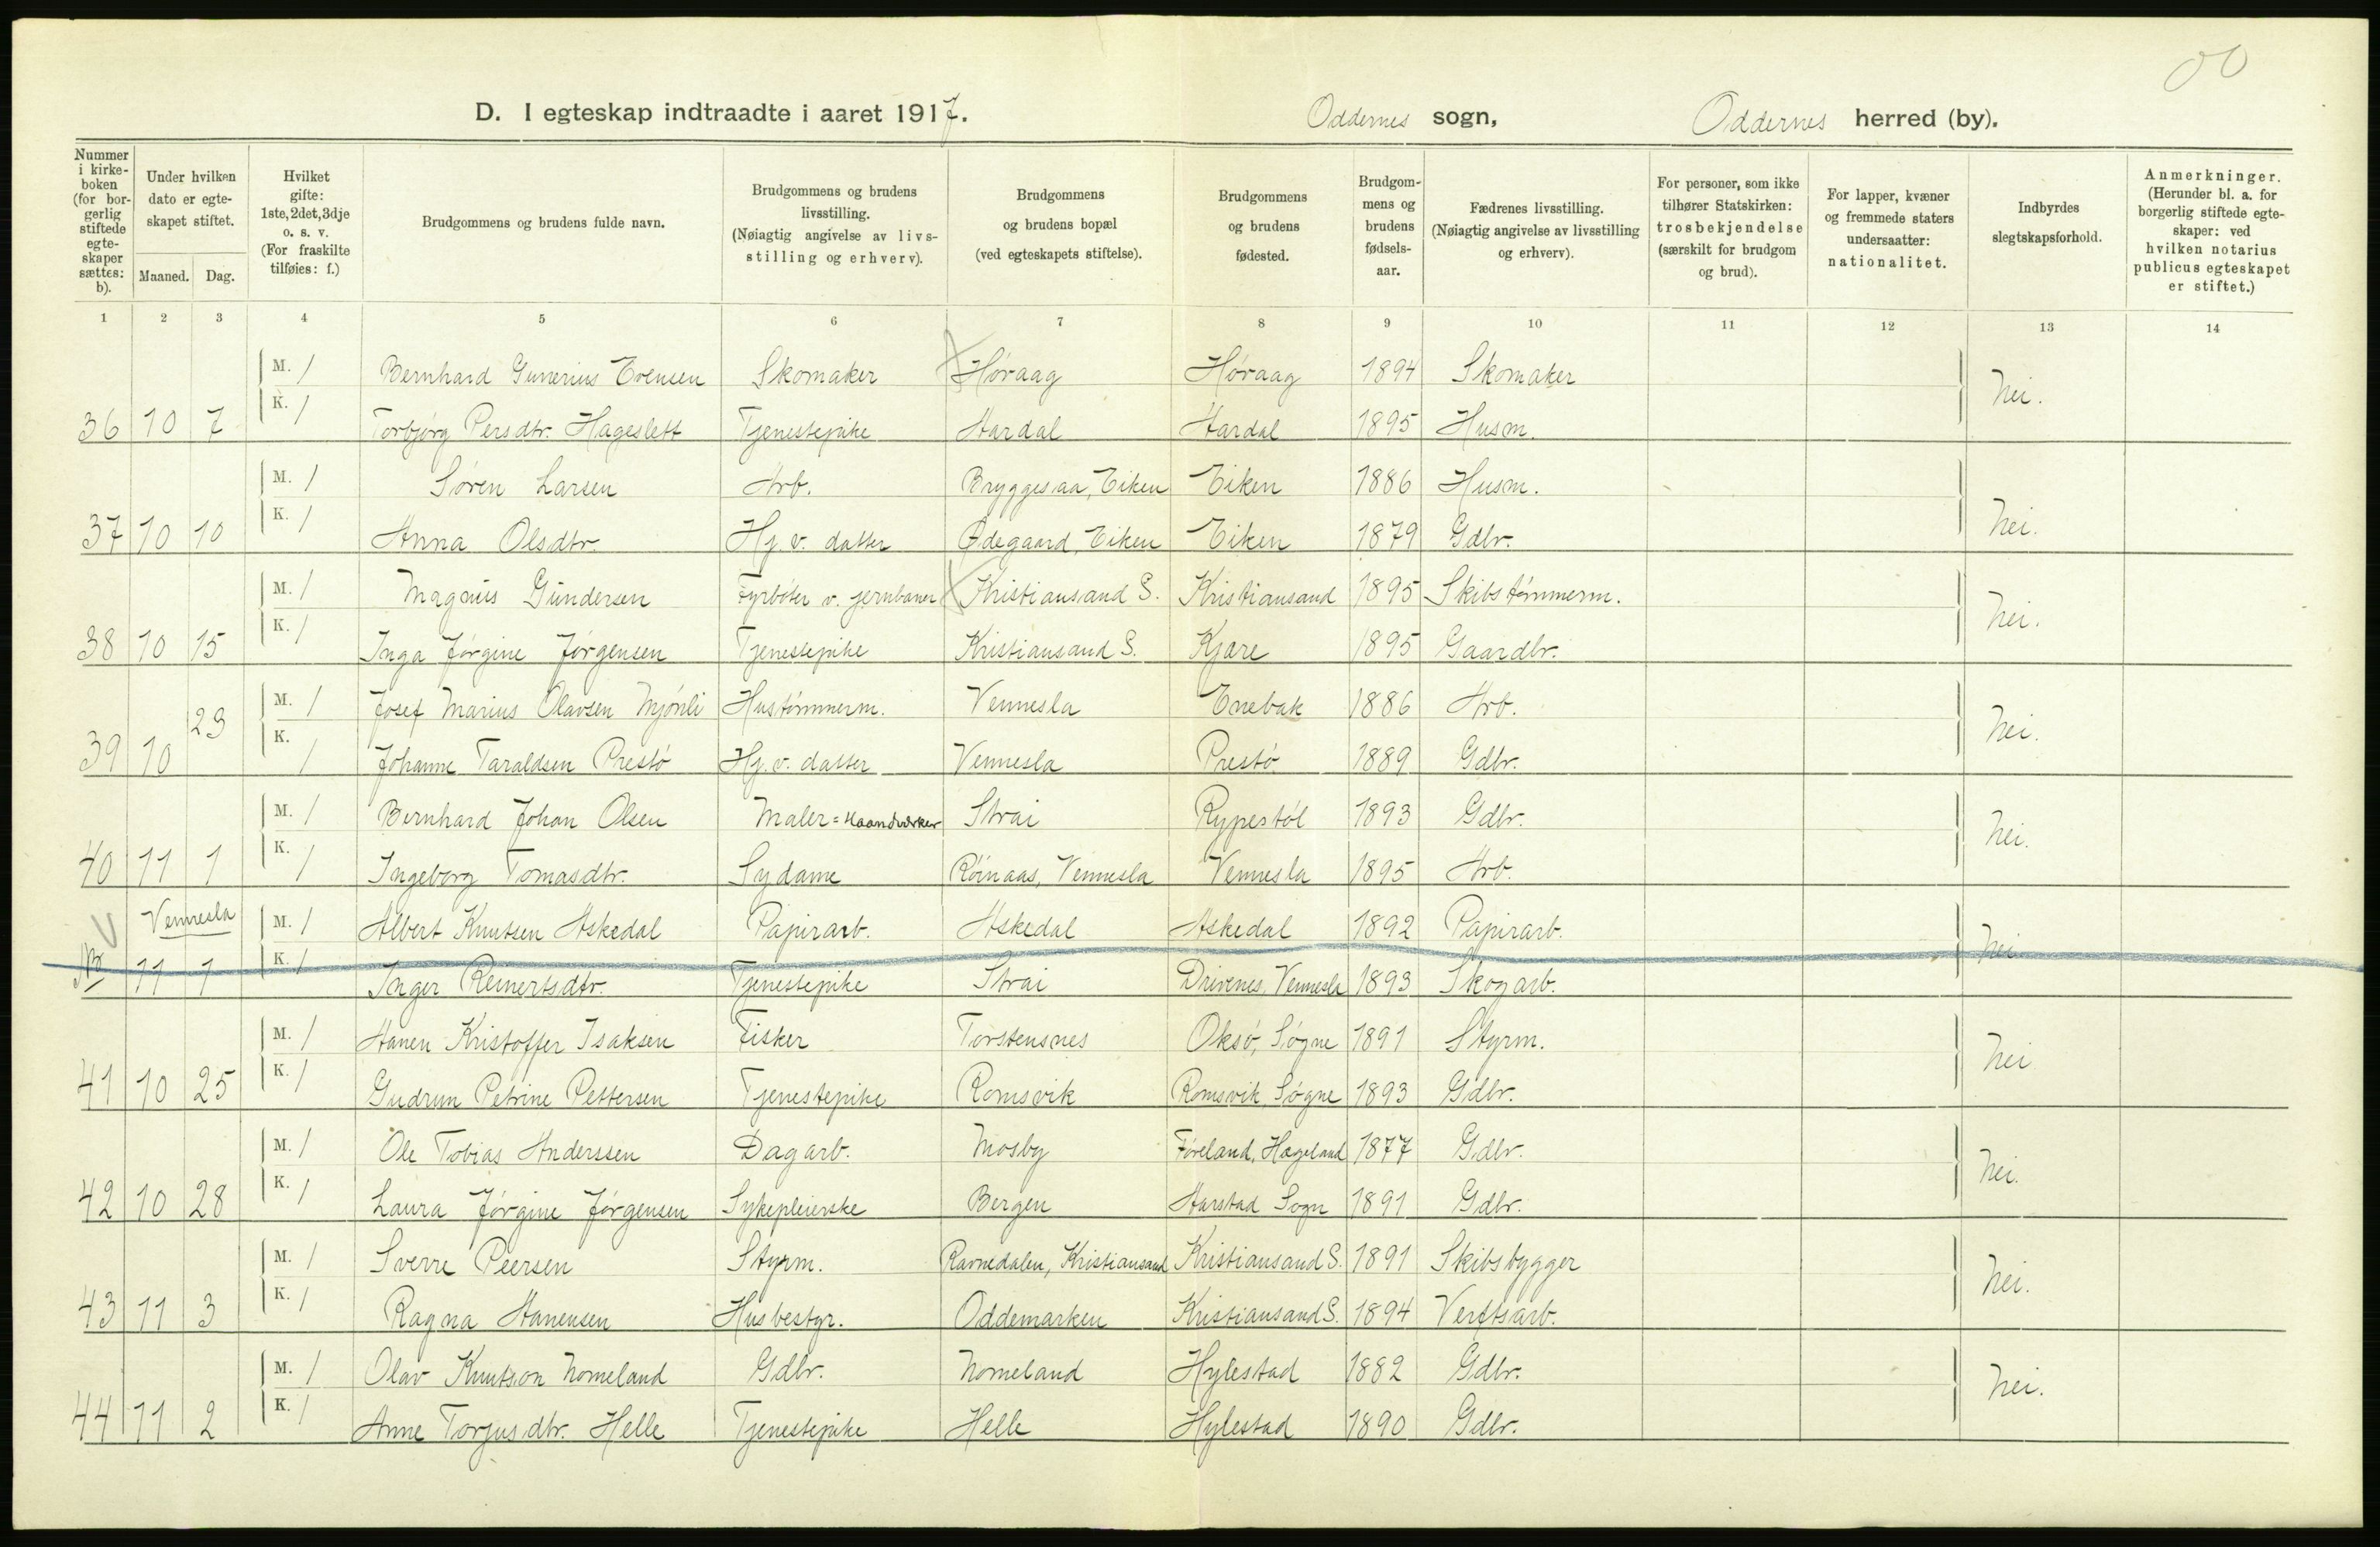 00
D. I egteskap indtraadte i aaret 1917. Oddernes sogn, Oddernes herred (by).
Nummer i kirkeboken (for borgerlig stiftede egteskaper sættes: b). Under hvilken dato er egteskapet stiftet. Maaned. Dag. Hvilket gifte: 1ste, 2det, 3dje o. s. v. (For fraskilte tilføies: f.) Brudgommens og brudens fulde navn. Brudgommens og brudens livsstilling. (Nøiagtig angivelse av livsstilling og erhverv). Brudgommens og brudens bopæl (ved egteskapets stiftelse). Brudgommens og brudens fødested. Brudgommens og brudens fødselsaar. Fædrenes livsstilling. (Nøiagtig angivelse av livsstilling og erhverv). For personer, som ikke tilhører Statskirken: trosbekjendelse (særskilt for brudgom og brud). For lapper, kvæner og fremmede staters undersaatter: nationalitet. Indbyrdes slegtskapsforhold. Anmerkninger. (Herunder bl. a. for borgerlig stiftede egteskaper: ved hvilken notarius publicus egteskapet er stiftet.)
1 2 3 4 5 6 7 8 9 10 11 12 13 14
M. 1 Bernhard Gunerius Evensen Skomaker Høraag Høraag 1894 Skomaker nei.
36 10 7 K. 1 Torbjørg Persdtr. Hageslett Tjenestepike Aardal Aardal 1895 Husm.
M. 1 Søren Larsen Arb. Bryggesaa, Eiken Eiken 1886 Husm. nei.
37 10 10 K. 1 Anna Olsdtr. Hj. v. datter Ødegaard, Eiken Eiken 1879 Gdbr.
M. 1 Magnus Gundersen Fyrbøter v. jernbanen Kristiansand S. Kristiansand 1895 Skibstømmerm. nei.
38 10 15 K. 1 Inga Jørgine Jørgensen Tjenestepike Kristiansand S. Kjære 1895 Gaardbr.
M. 1 Josef Marius Olavsen Mjønli Hustømmerm. Vennesla Enebak 1886 Arb. nei.
39 10 29 K. 1 Johanne Taraldsen Prestø Hj. v. datter Vennesla Prestø 1889 Gdbr.
M. 1 Bernhard Johan Olsen Maler = Haandverker Strai Rypestøl 1893 Gdbr. nei.
40 11 1 K. 1 Ingeborg Tomasdtr. Sydame Røinaas, Vennesla Vennesla 1895 Arb.
Vennesla M. 1 Albert Knutsen Askedal Papirarb. Askedal Askedal 1892 Papirarb. nei
11 1 K. 1 Inger Reinertsdtr. Tjenestepike Strai Drivenes, Vennesla 1893 Skogarb.
M. 1 Hanen Kristoffer Isaksen Fisker Torstensnes Oksø, Søgne 1891 Styrm. nei
41 10 25 K. 1 Gudrun Petrine Pettersen Tjenestepike Romsvik Romsvik, Søgne 1893 Gdbr.
M. 1 Ole Tobias Anderssen Dagarb. Mosby Føreland, Hægeland 1877 Gdbr. nei.
42 10 28 K. 1 Laura Jørgine Jørgensen Sykepleierske Bergen Harstad Sogn 1891 Gdbr.
M. 1 Sverre Peersen Styrm. Ravnedalen, Kristiansand Kristiansand S. 1891 Skibsbygger nei.
43 11 3 K. 1 Ragna Hanensen Husbestyr. Oddemarken Kristiansand S. 1894 Verftsarb.
M. 1 Olav Knutson Nomeland Gdbr. Nomeland Hylestad 1882 Gdbr. nei.
44 11 2 K. 1 Anne Torjusdtr. Helle Tjenestepike Helle Hylestad 1890 Gdbr.